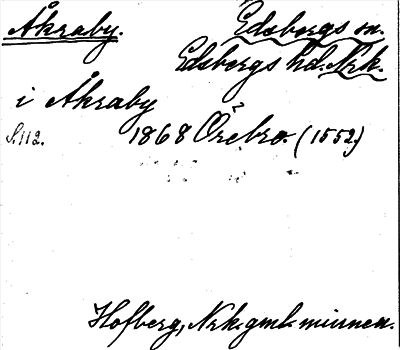 Åkraby. Edsbergs sn.
Edsbergs hd. Nrk.
i Åkraby
S.112. 1868 Örebro. (1552)
2
Hofberg, Nrk. gml. minnen.